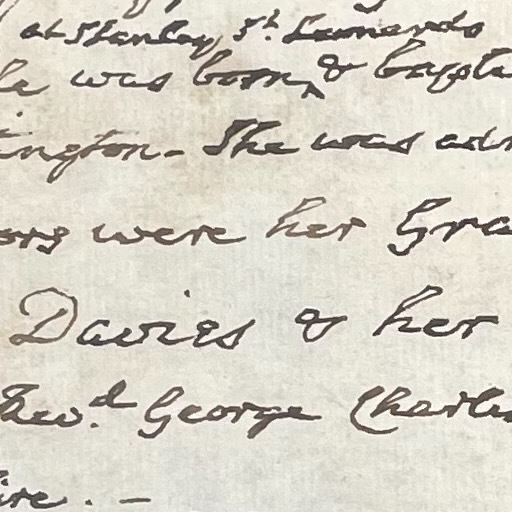 at Stanley, St. Leonards
was born, & bapti
ington - She was adm
ors were her Gra
Davies & her
Revd. George Charles
ire. -